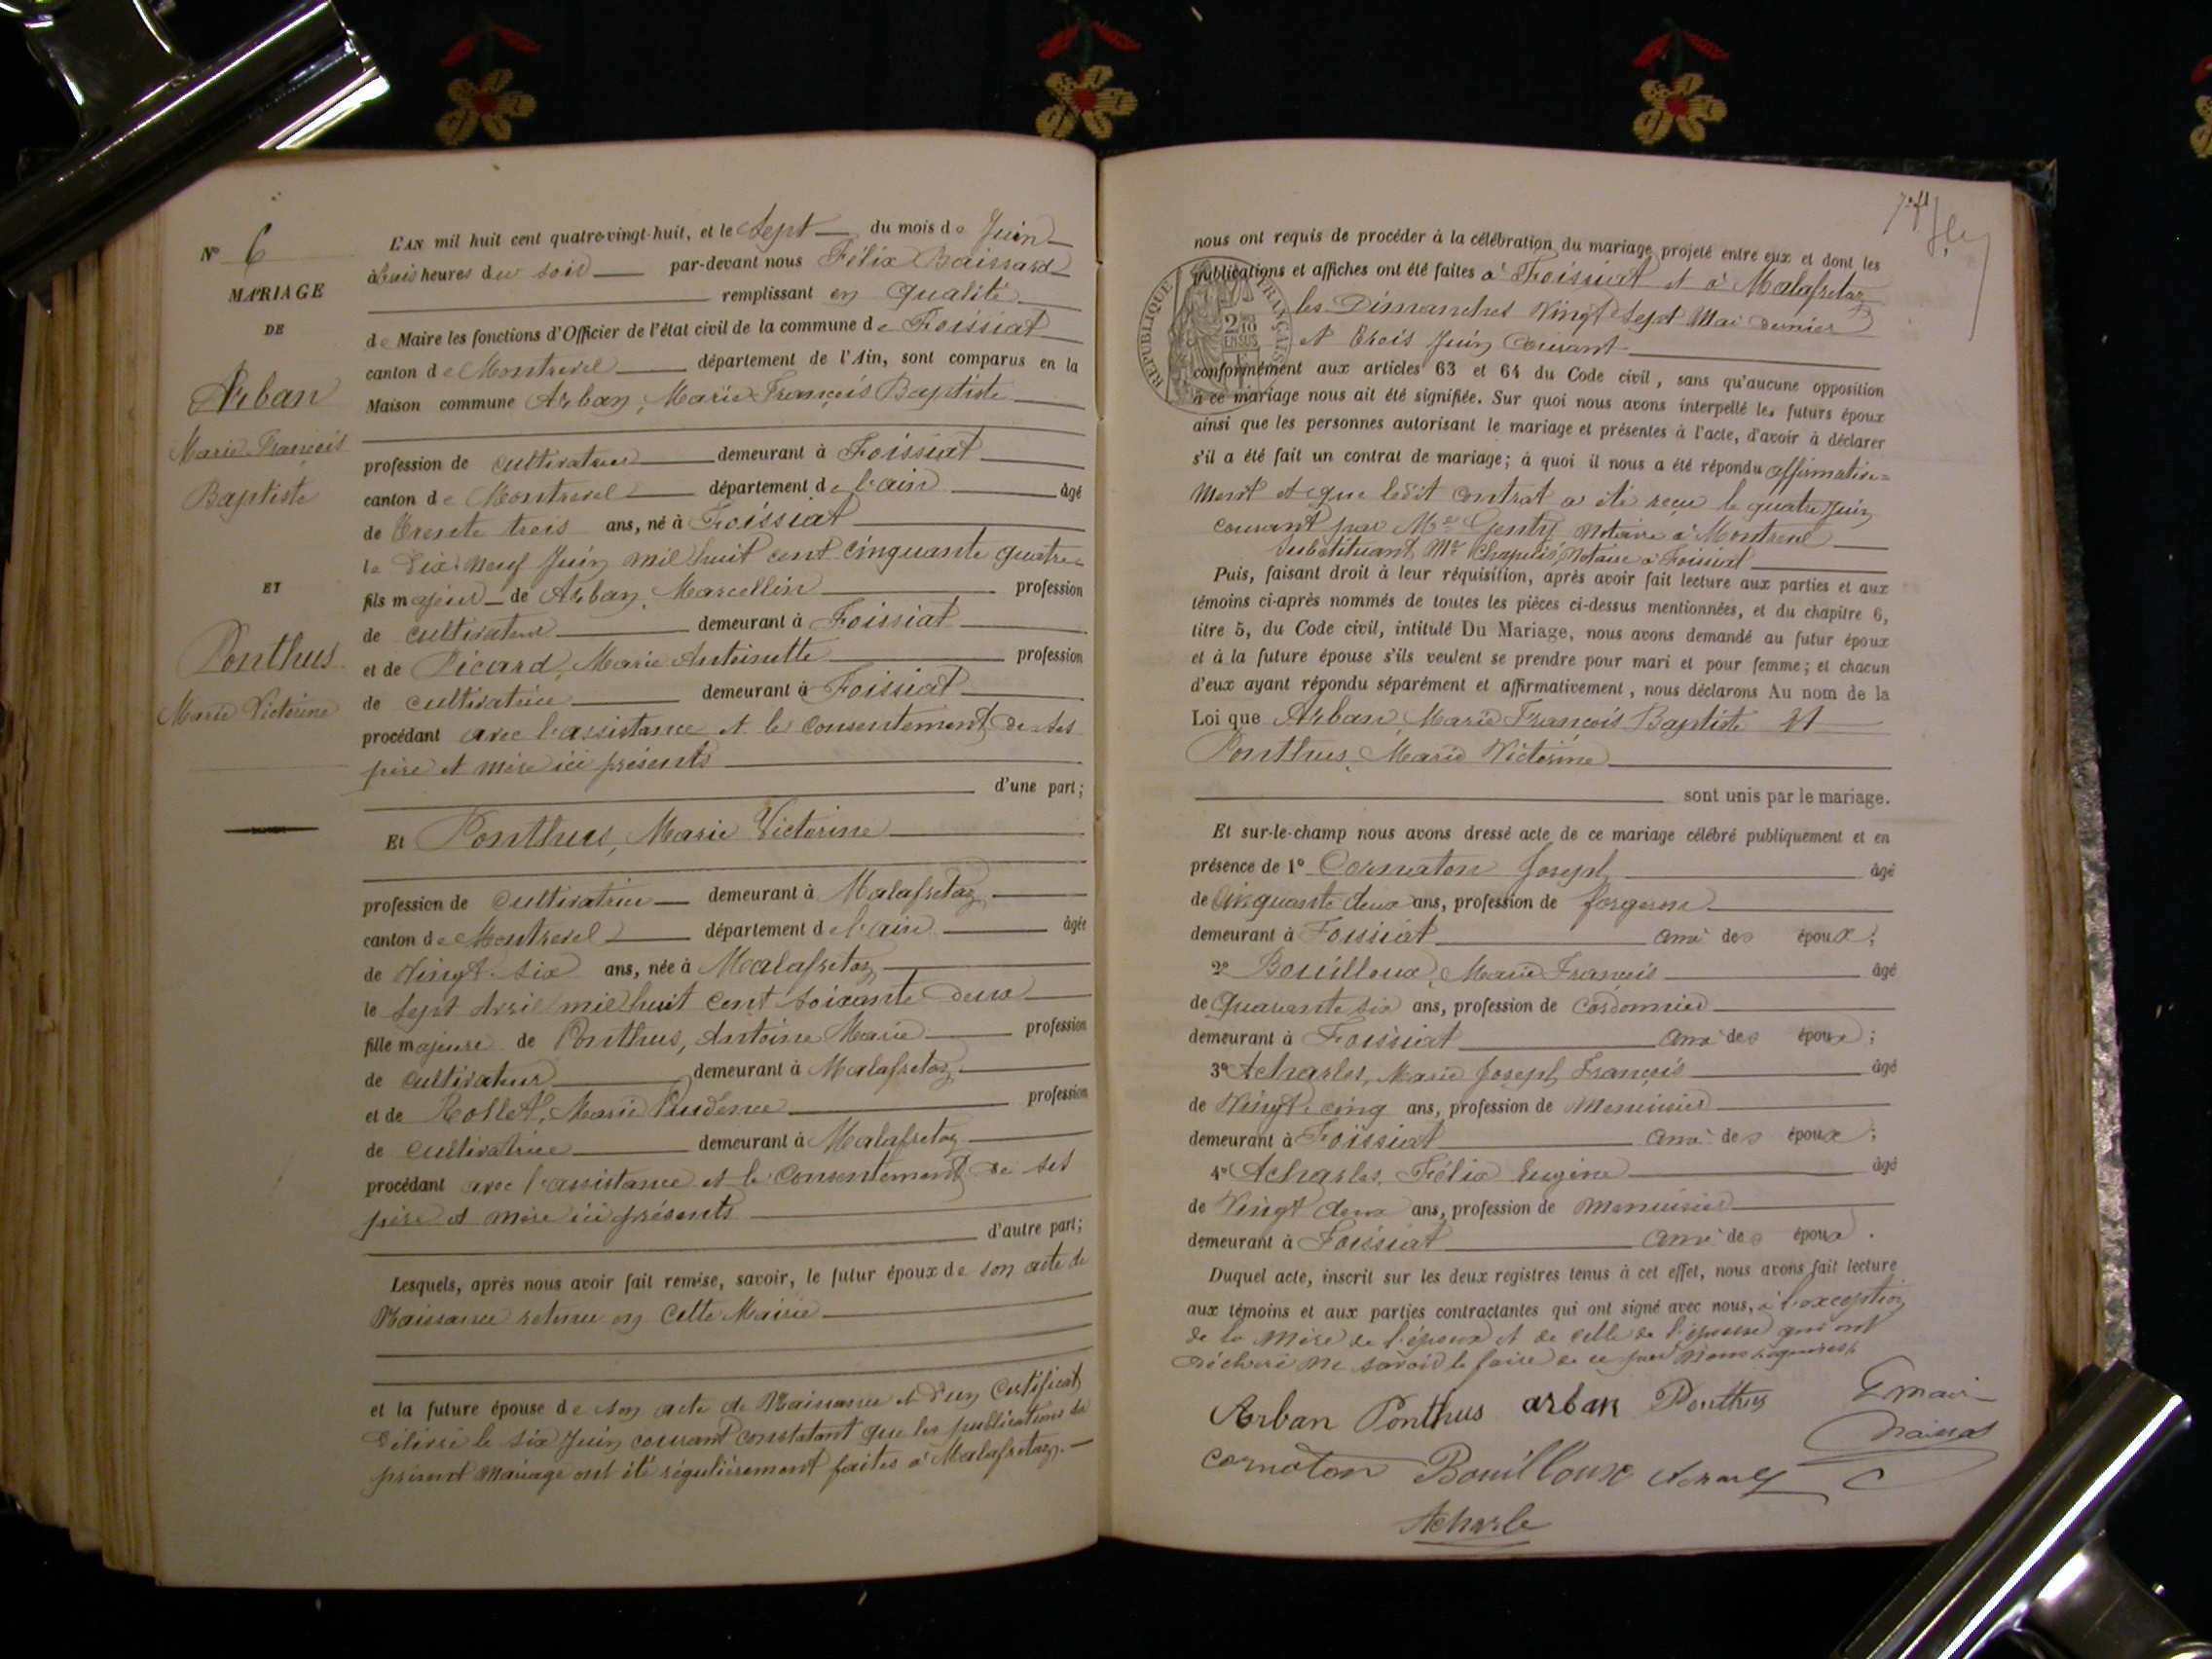 N° 6
MARIAGE
DE
Arban
Marie François
Baptiste
ET
Ponthus
Marie Victorine
L'AN mil huit cent quatre-vingt-huit, et le Sept du mois de Juin
à trois heures du soir par-devant nous Félix
remplissant en qualité
de Maire les fonctions d'Officier de l'état civil de la commune de Foissiat
canton de Montrevel département de l'Ain, sont comparus en la
Maison commune Arban, Marie François Baptiste
profession de cultivateur demeurant à Foissiat
canton de Montrevel département de l'ain âgé
de trente trois ans, né à Foissiat
le Dix neuf Juin mil huit cent cinquante quatre
fils majeur de Arban, Marcellin profession
de cultivateur demeurant à Foissiat
et de Picard, Marie Antoinette profession
de cultivatrice demeurant à Foissiat
procédant avec l'assistance et le consentement de ses
père et mère ici présents
d'une part;
Et Ponthus, Marie Victorine
profession de cultivatrice demeurant à Malafretaz
canton de Montrevel département de l'ain âgée
de Vingt-six ans, née à Malafretaz
le sept Avril mil huit cent soixante deux
fille majeure de Ponthus, Antoine Marie profession
de cultivateur demeurant à Malafretaz
et de Rollet, Marie Prudence profession
de cultivatrice demeurant à Malafretaz
procédant avec l'assistance et le consentement de ses
père et mère ici présents
d'autre part;
Lesquels, après nous avoir fait remise, savoir, le futur époux de son acte de
Naissance retenu en cette Mairie
et la future épouse de son acte de Naissance et d'un Certificat
délivré le six Juin courant constatant que les publications du
présent mariage ont été régulièrement faites à Malafretaz.
nous ont requis de procéder à la célébration du mariage projeté entre eux et dont les
publications et affiches ont été faites à Foissiat et à Malafretaz
les Dimanches Vingt sept Mai dernier
et trois Juin Courant
RÉPUBLIQUE FRANÇAISE
2/10
EN SUS
conformément aux articles 63 et 64 du Code civil, sans qu'aucune opposition
à ce mariage nous ait été signifiée. Sur quoi nous avons interpellé les futurs époux
ainsi que les personnes autorisant le mariage et présentes à l'acte, d'avoir à déclarer
s'il a été fait un contrat de mariage; à quoi il nous a été répondu affirmative=
ment et que ledit contrat a été reçu le quatre Juin
courant par Me Genty Notaire à Montrevel
substituant Me Chapuis, Notaire à Foissiat
Puis, faisant droit à leur réquisition, après avoir fait lecture aux parties et aux
témoins ci-après nommés de toutes les pièces ci-dessus mentionnées, et du chapitre 6,
titre 5, du Code civil, intitulé Du Mariage, nous avons demandé au futur époux
et à la future épouse s'ils veulent se prendre pour mari et pour femme; et chacun
d'eux ayant répondu séparément et affirmativement, nous déclarons Au nom de la
Loi que Arban, Marie François Baptiste Et
Ponthus, Marie Victorine
sont unis par le mariage.
Et sur-le-champ nous avons dressé acte de ce mariage célébré publiquement et en
présence de 1° Cornaton Joseph âgé
de Cinquante deux ans, profession de forgeron
demeurant à Foissiat ami des époux;
2° Bouilloux, Marie François âgé
de Quarante six ans, profession de Cordonnier
demeurant à Foissiat ami des époux;
3° Acharles, Marie Joseph François âgé
de Vingt-cinq ans, profession de Menuisier
demeurant à Foissiat ami des époux;
4° Acharles, Félix Eugène âgé
de Vingt deux ans, profession de menuisier
demeurant à Foissiat ami des époux.
Duquel acte, inscrit sur les deux registres tenus à cet effet, nous avons fait lecture
aux témoins et aux parties contractantes qui ont signé avec nous, à l'exception
de la mère de l'époux et de celle de l'épouse qui ont
déclaré ne savoir le faire de ce par nous requises
Arban Ponthus arban Ponthus
cornaton Bouilloux
Acharle